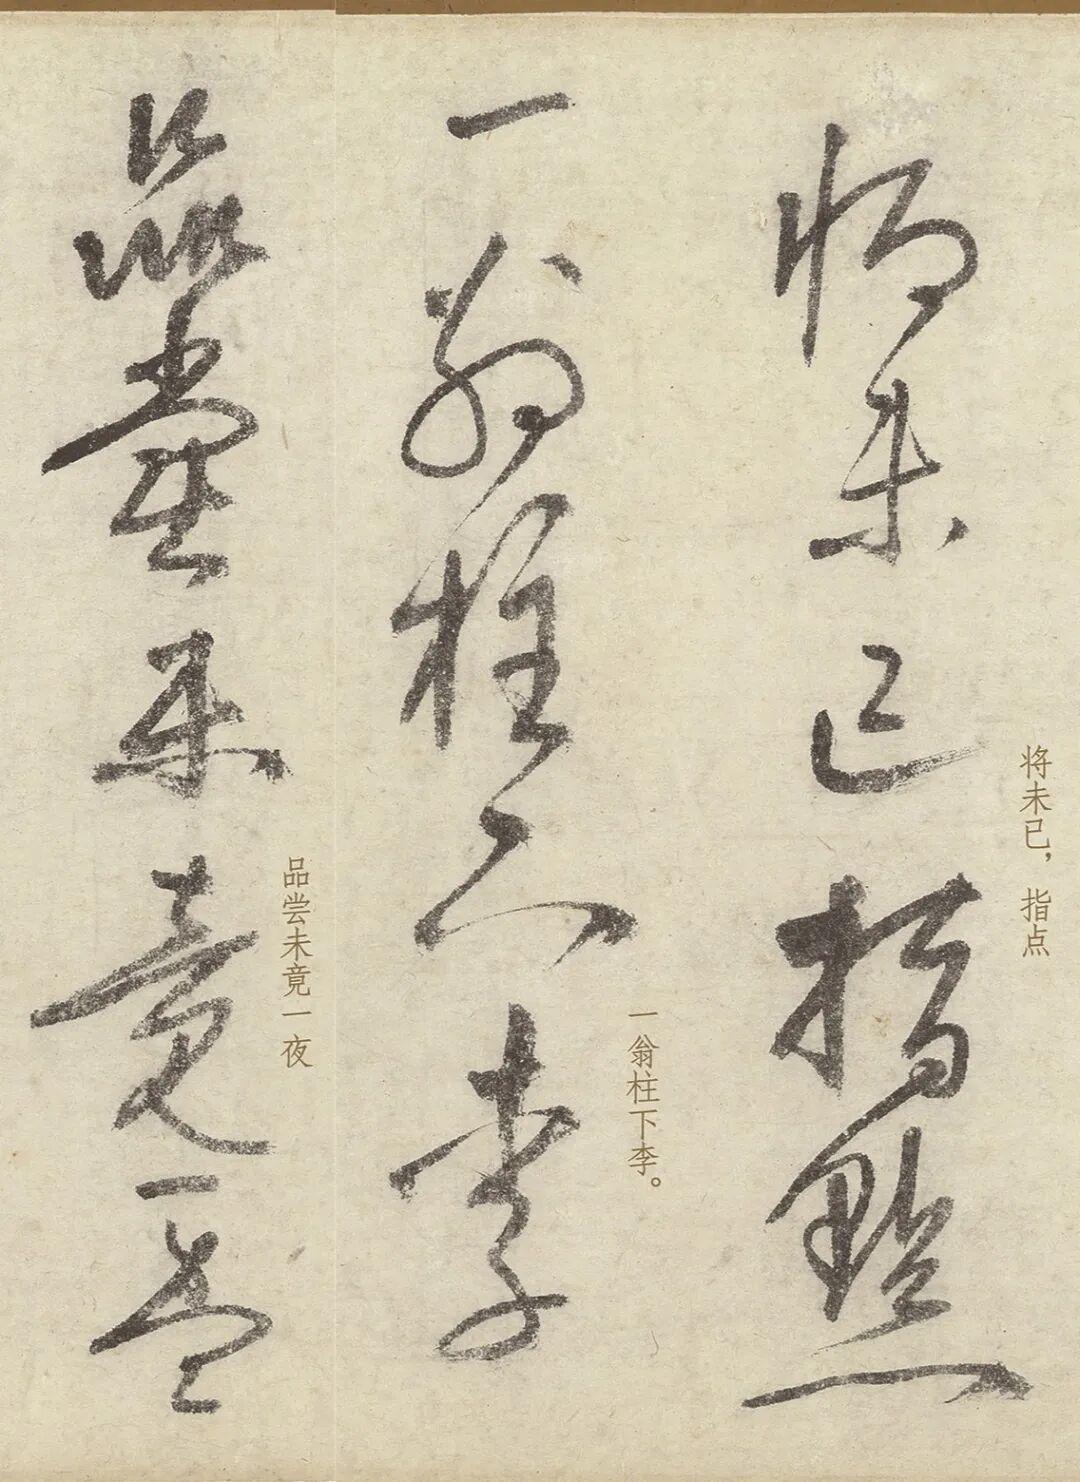 将未已，指点
將未已指點
一翁柱下李。
一翁柱下李
品尝未竟一夜
品嘗未竟一